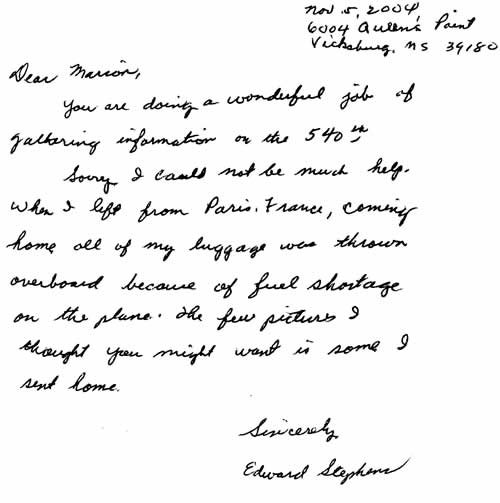 Nov. 5, 2004
6004 Queen's Point
Vicksburg, MS 39180
Dear Marion,
You are doing a wonderful job of
gathering information on the 540th
Sorry I could not be much help.
When I left from Paris, France, coming
home all of my luggage was thrown
overboard because of fuel shortage
on the plane. The few pictures I
thought you might want is some I
sent home.
Sincerely,
Edward Stephens